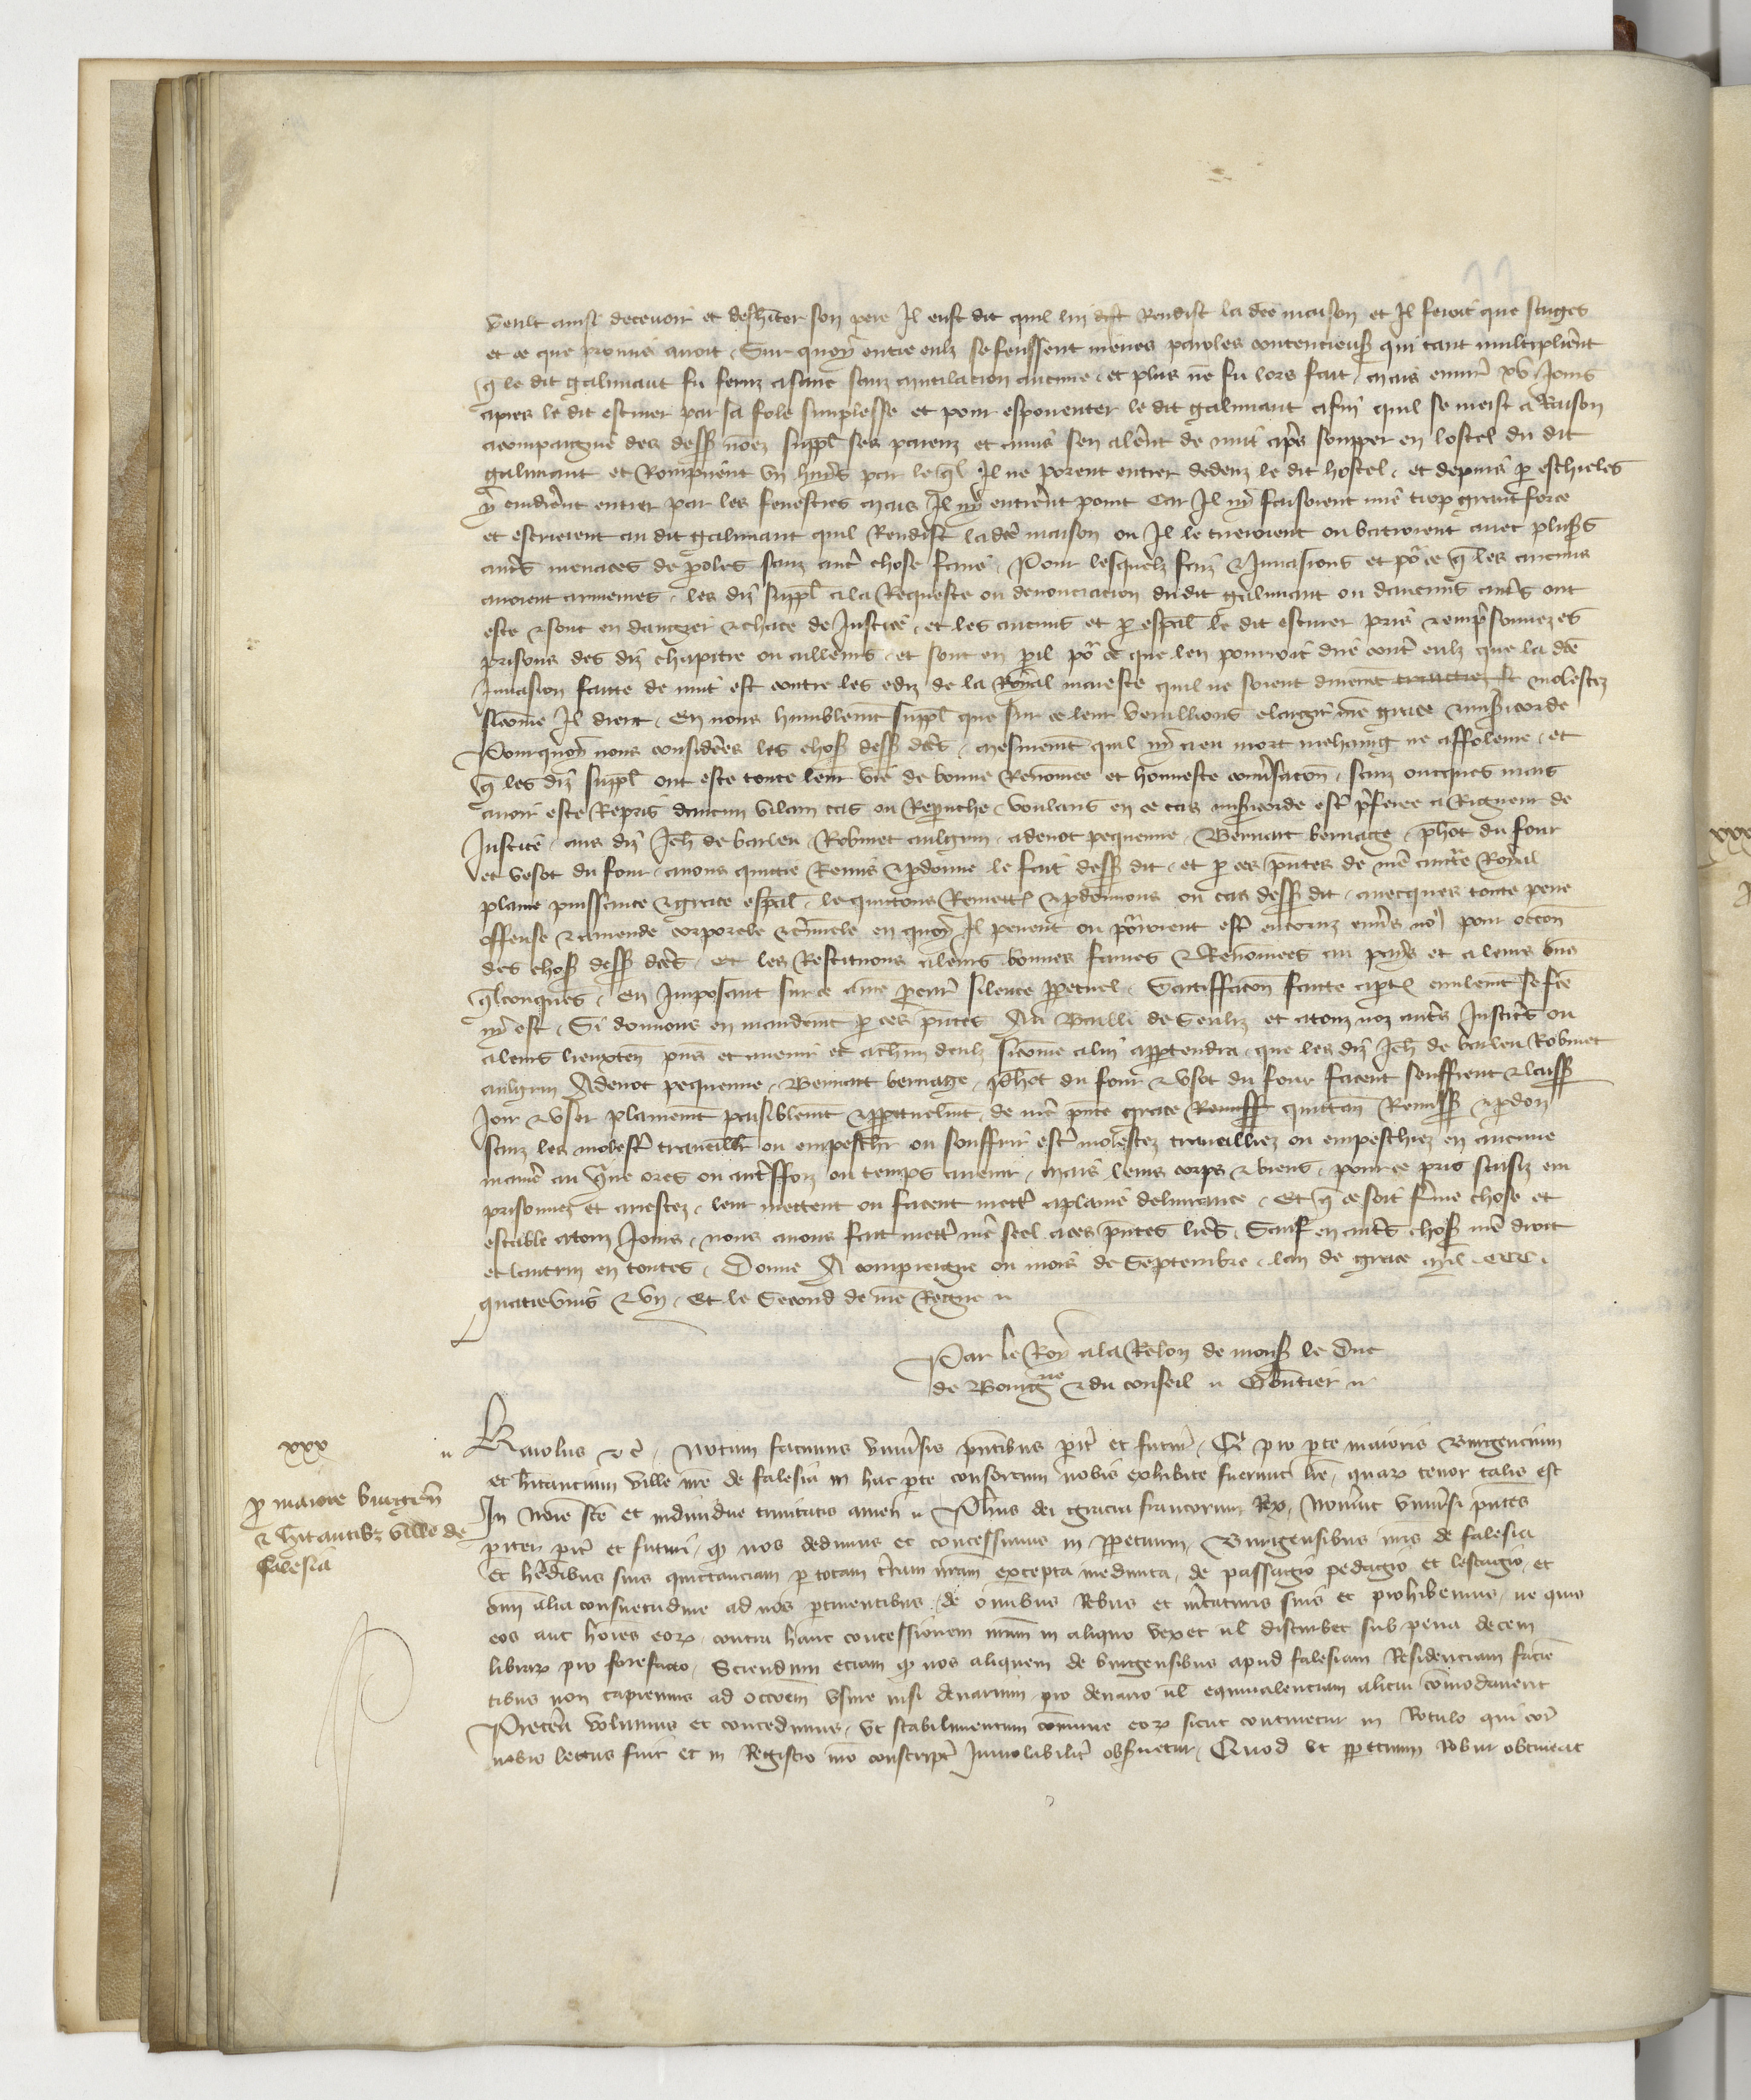 veult ainsi decevoir et desh̄iter son pere Il eust dit quil lui dist Rendist la dc̄e maison et Il feroit que sages
et ce que promis avoit. Sur quoy entre eulz se feussent meues paroles contencieus̄ qui tant multiplierēt
q̄ le dit galimaut fu feruz a sanc sanz mutilacion aucune. et plus ne fu lors fait. mais environ xv Jours
apres le dit estiner par sa fole simplesse et pour espouenter le dit galimaut afin quil se meist a Raison
acompaignie des dess̄ nōez suppl̄ ses parenz et amis sen alerēt de nuit ap̄s soupper en lostel du dit
galimaut et Rompirent un huys par leq̄l Il ne porent entrer dedenz le dit hostel. et depuis p̄ eschieles
y cuiderēt entrer par les fenestres mais Il ny entrerēt point Car Il ny faisoient mie trop grant force
et escrierent au dit galimaut quil Rendist la dc̄e maison ou Il le tueroient ou batroient avec plus̄rs
autr̄s menaces de p̄oles sanz autr̄ chose faire. Pour lesquelz faiz & Invasions et po͛ ce q̄ les aucuns
avoient armeures. les diz suppl̄ a la Requeste ou denonciacion du dit galimaut ou daucuns autr̄s ont
este & sont en dangier & chace de Justice. et les aucuns et p̄ esp̄al le dit estiner pris & emp̄sonnez es
prisons des diz chapitre ou ailleurs. et sont en p̄il po͛ ce que len pourroit dire contr̄ eulz que la dc̄e
Invasion faitte de nuit est contre les ediz de la Roȳal maieste quil ne soient durem̄t traictiez et molestez
sicom̄e Il dient. En nous humblemt̄ suppl̄ que sur ce leur veuillions eslargir nr̄e grace & mis̄icorde
Pourquoy nous considerees les chos̄ dess̄ dc̄es. mesmemt̄ quil ny a eu mort mehaing ne affoleure. et
q̄ les diz suppl̄ ont este toute leur vie de bonne Renomee et honneste conv̄sacōn. sanz oncques mais
avoir este Repris daucun vilain cas ou Reprouche. voulans en ce cas mis̄icorde estr̄ p̄feree a Rigueur de
Justice. aus diz Jeh̄ de barleu Robinet aulgrin. adenot pequenne. Bernart bernage. ph̄ot du four
et vesot du four. avons quicte Remis & p̄donne le fait dess̄ dit. et p̄ ces p̄ntes de nr̄e auctē Roȳal
plaine puissance & grace esp̄al. le quittons Remett̄ & p̄donnons ou cas dess̄ dit. avecques toute peine
offense & amende corporele & cr̄iminele en quoy Il peuent ou po͛roient estr̄ encoruz env̄s no͛ pour occōn
des chos̄ dess̄ dc̄es. et les Restituons a leurs bonnes fames & Renomees au pays et a leurs b̄ns
q̄lconques. En Imposant sur ce a nr̄e p̄cur̄ silence p̄petuel. Satiffacōn faitte a p̄t̄ civilemt̄ se fc̄e
ny est. Si donnons en mandemt̄ p̄ ces p̄ntes Au Bailli de Senliz et a touz noz autr̄s Justicrs̄ ou
a leurs lieuxten̄ p̄ns et avenir et a ch̄un deulx sicom̄e a lui app̄tendra. que les diz Jeh̄ de barleu Robinet
aulgrin Adenot pequenne. Bernart bernage. Ph̄ot du four & vesot du four facent seuffrent & laiss̄
Joir & user plainemt̄ paisiblemt̄ & p̄petuelmt̄. de nr̄e p̄nte grace Remiss̄ quittan̄ Remiss̄ & p̄don
sanz les molestr̄ travaill̄r ou empesch̄r ou souffrir estr̄ molestez travailliez ou empeschiez en aucune
manie͛ au gr̄ne ores ou autreffoiz ou temps avenir. mais leurs corps & biens. pour ce pris saisiz em
prisonnez et arrestez. leur mettent ou facent mettr̄ a plaine delivrance. Et q̄ ce soit f̄me chose et
estable a touz Jours. nous avons fait mettr̄ nr̄e seel a ces p̄ntes lettr̄s. Sauf en autr̄s chos̄ nr̄e droit
et lautrui en toutes. Donne A compiengne ou mois de Septembre. lan de grace mil. CCC.
quatrevins & un. Et le Second de nr̄e Regne
Par le Roy a la Relon̄ de mons̄ le duc
de Bourgne & du conseil. Gōntier
xxx
p̄ maiore burgen̄
& h̄itantibz ville de
falesia
Karolus &c̄. Notum facimus univ̄sis p̄ntibus pit̄ et futur̄. Q̄d pro p̄te maioris Burgencium
et h̄itancium ville nr̄e de falesia in hac p̄te consorcium nobis exhibite fuerunt lr̄e. quaꝝ tenor talis est
In noīe s̄ce et individue trinitatis amen. Ph̄us dei gracia francorum Rex. Nov̄int univ̄si p̄ntes
pariter pit̄ et futuri. q̄d nos dedimus et concessimus in p̄petuum. Burgensibus nr̄is de falesia
et h̄edibus suis quictanciam p̄ totam t̄ram nr̄am excepta medunta. de passagio pedagio et lestagio. et
om̄i alia consuetudine ad nos p̄tinentibus. de om̄ibus Rebus et m̄caturis suis et prohibemus. ne quis
eos aut h̄oies eoꝝ. contra hanc concessionem nr̄am in aliquo vexet ul̄ disturbet sub pena decem
libraꝝ pro forefacto. Sciendum eciam q̄d nos aliquem de burgensibus apud falesiam Residenciam facie
tibus non capiemus ad occōem usure nisi denarium pro denario ul̄ equivalencium alicui com̄odaverit
Preterea volumus et concedimus. ut stabilimentum com̄une eoꝝ sicut continetur in Rotulo qui cor̄
nobis lectus fuit et in Registro nr̄o conscript̄ Inviolabilit̄ observetur. Quod ut p̄petuum Robur obtineat